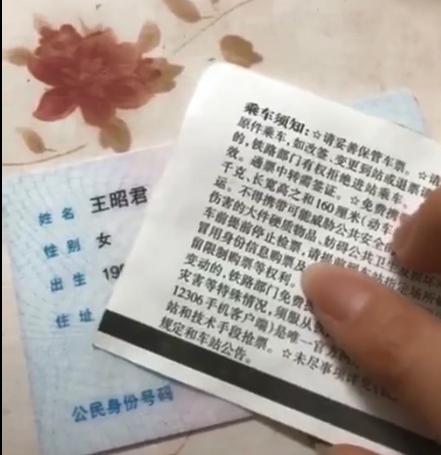 姓名 王昭君
性别 女
出生 199
住址
公民身份号码
乘车须知：☆请妥善保管车票。☆请
原件乘车，如改签、变更到站或退票请
的，铁路部门有权拒绝进站乘车。
效。通票中转需签证。☆免费携
千克，长宽高之和160厘米（动车
运。不得携带可能威胁公共安全的
伤害的大件硬质物品、妨碍公共卫生及损坏车
车前提前停止检票，请提前到车站指定场所候
冒用身份信息购票及
留限制购票等权利。
变动的，铁路部门免费
灾害等特殊情况，须服从
12306手机客户端）是唯一官方
站和技术手段抢票。☆未尽事项详见
规定和车站公告。